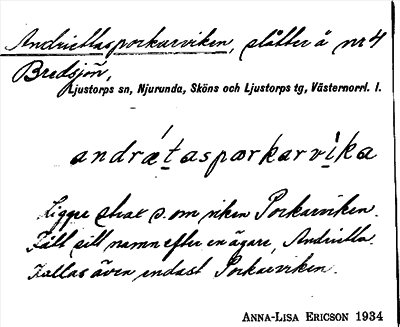 Andriettasporkarviken, slåtter å nr 4
Bredsjön,
Ljustorps sn, Njurunda, Sköns och Ljustorps tg, Västernorrl. l.
andrǽt̠asporkarvìka
Ligger strax s. om viken Porkarviken.
Fått sitt namn efter en ägare, Andrietta.
Kallas även endast Porkarviken.
ANNA-LISA ERICSON 1934